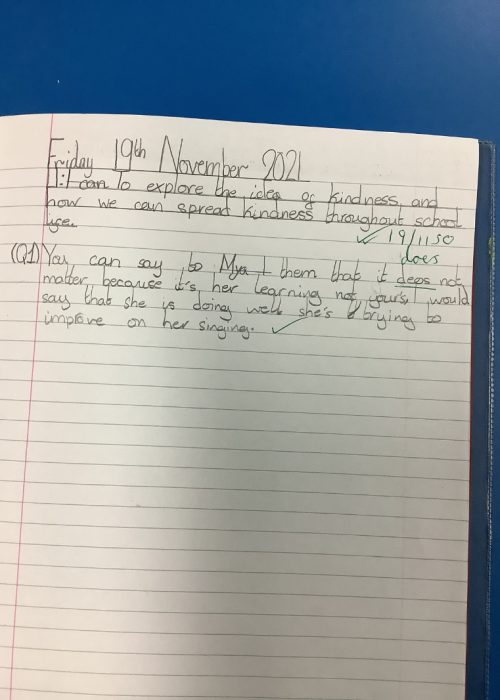 Friday 19th November 2021
I can to explore the idea of kindness and
how we can spread kindness throughout school
life.
19/11 SO
does
(Q1) You can say to Mya I them that it deos not
matter because it's her learning not yours. I would
say that she is doing well she's trying to
improve on her singing.